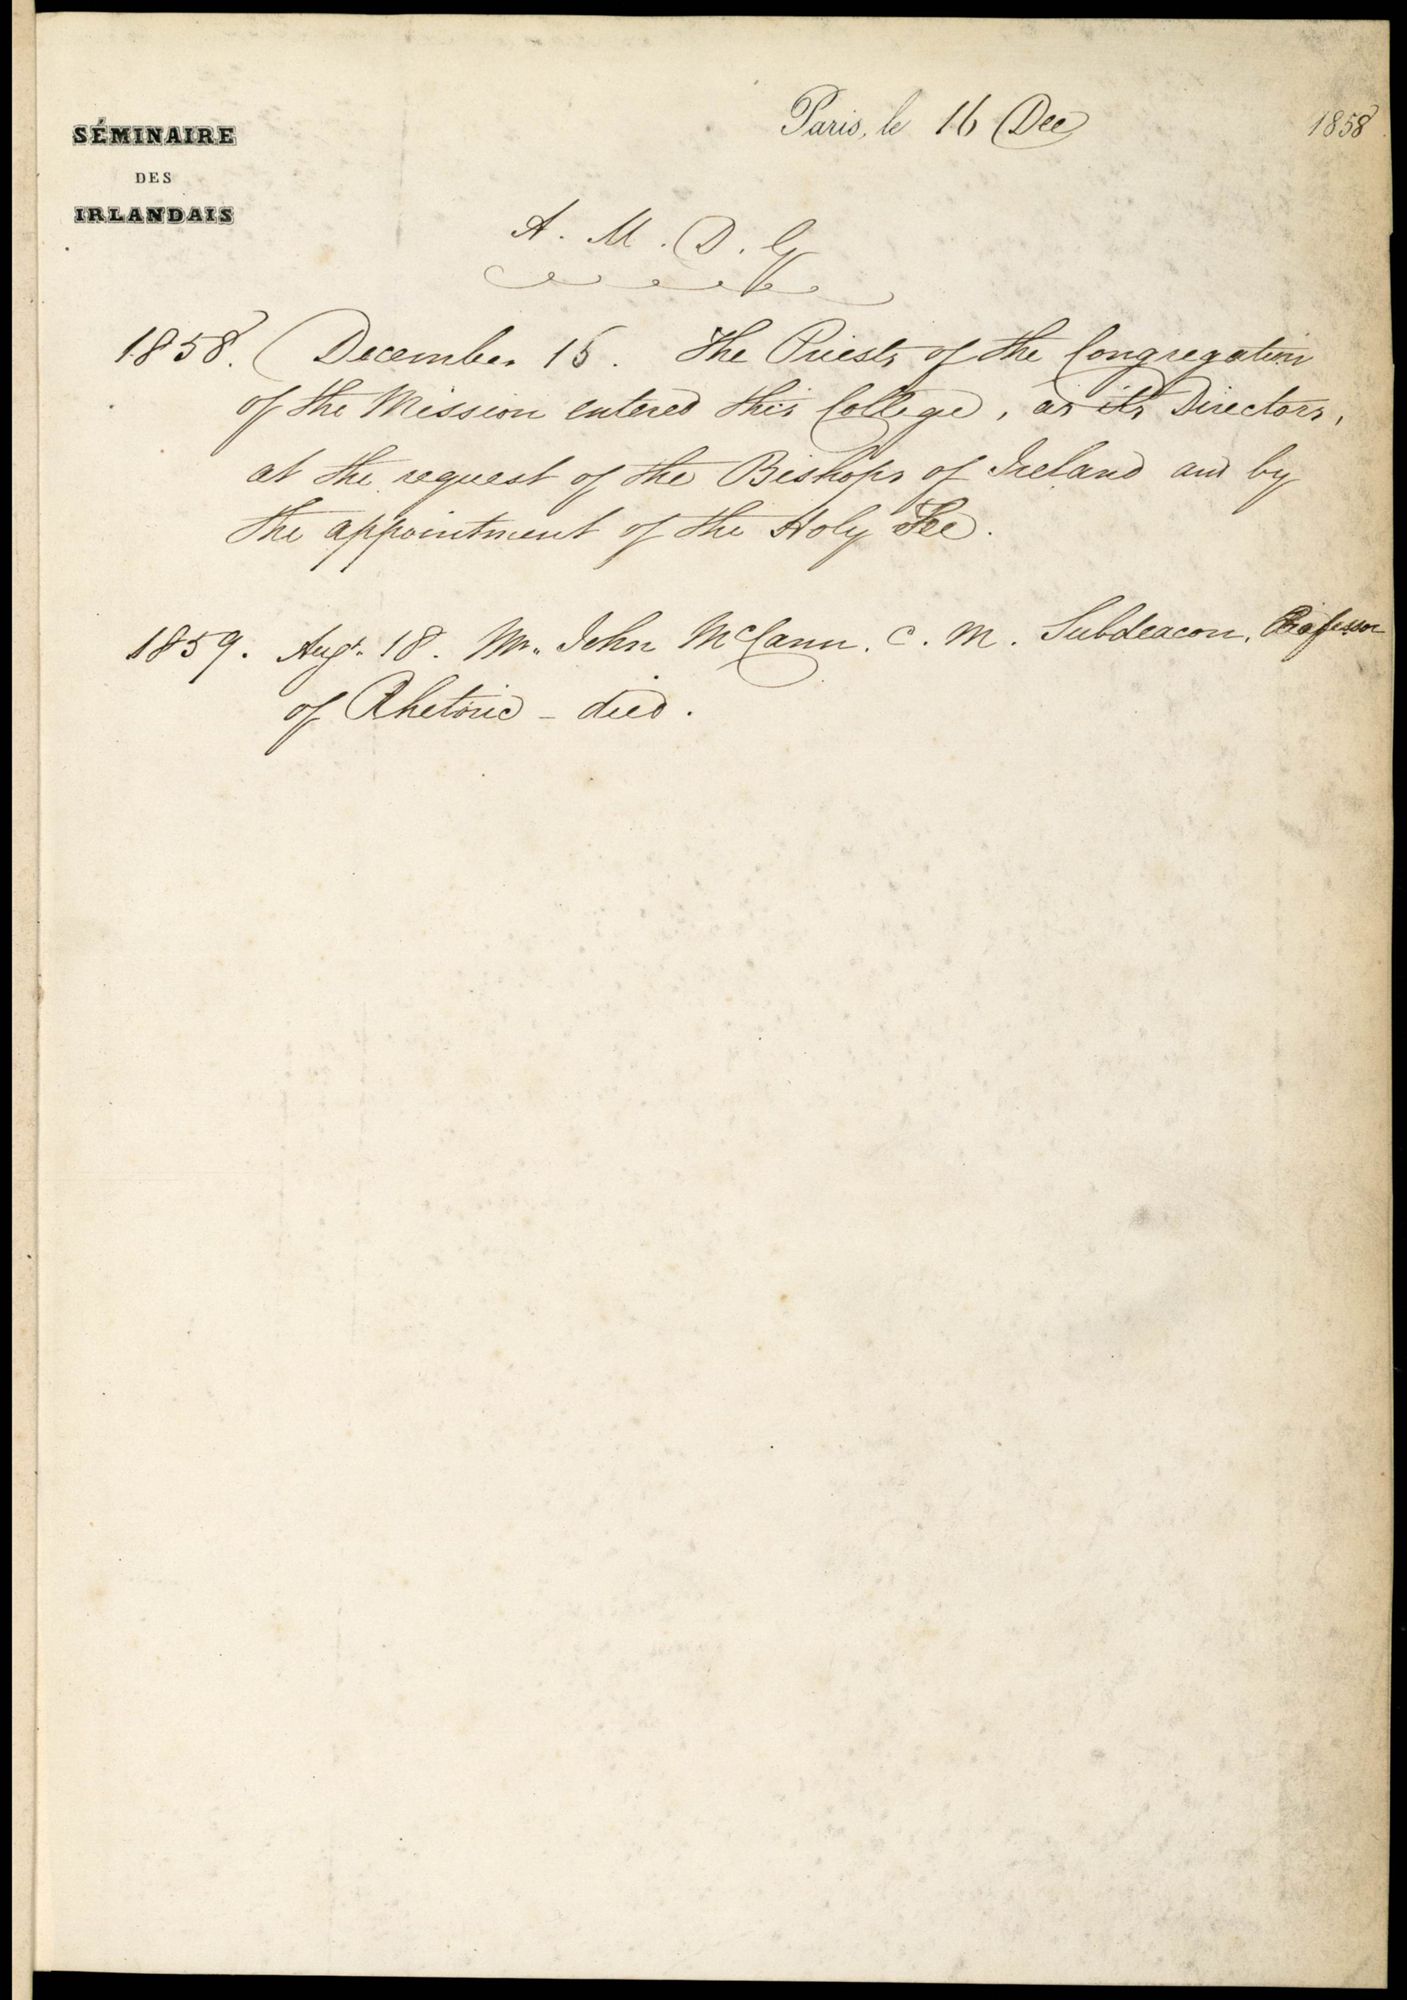 SÉMINAIRE
DES
IRLANDAIS
Paris, le 16 Dec 1858
A. M. D. G
1858. December 15. The Priests of the Congregation
of the Mission entered this College, as its Directors,
at the request of the Bishops of Ireland and by
the appointment of the Holy See.
1859. Augt. 18. Mr. John McCann. C. M. Subdeacon, Professor
of Rhetoric - died.